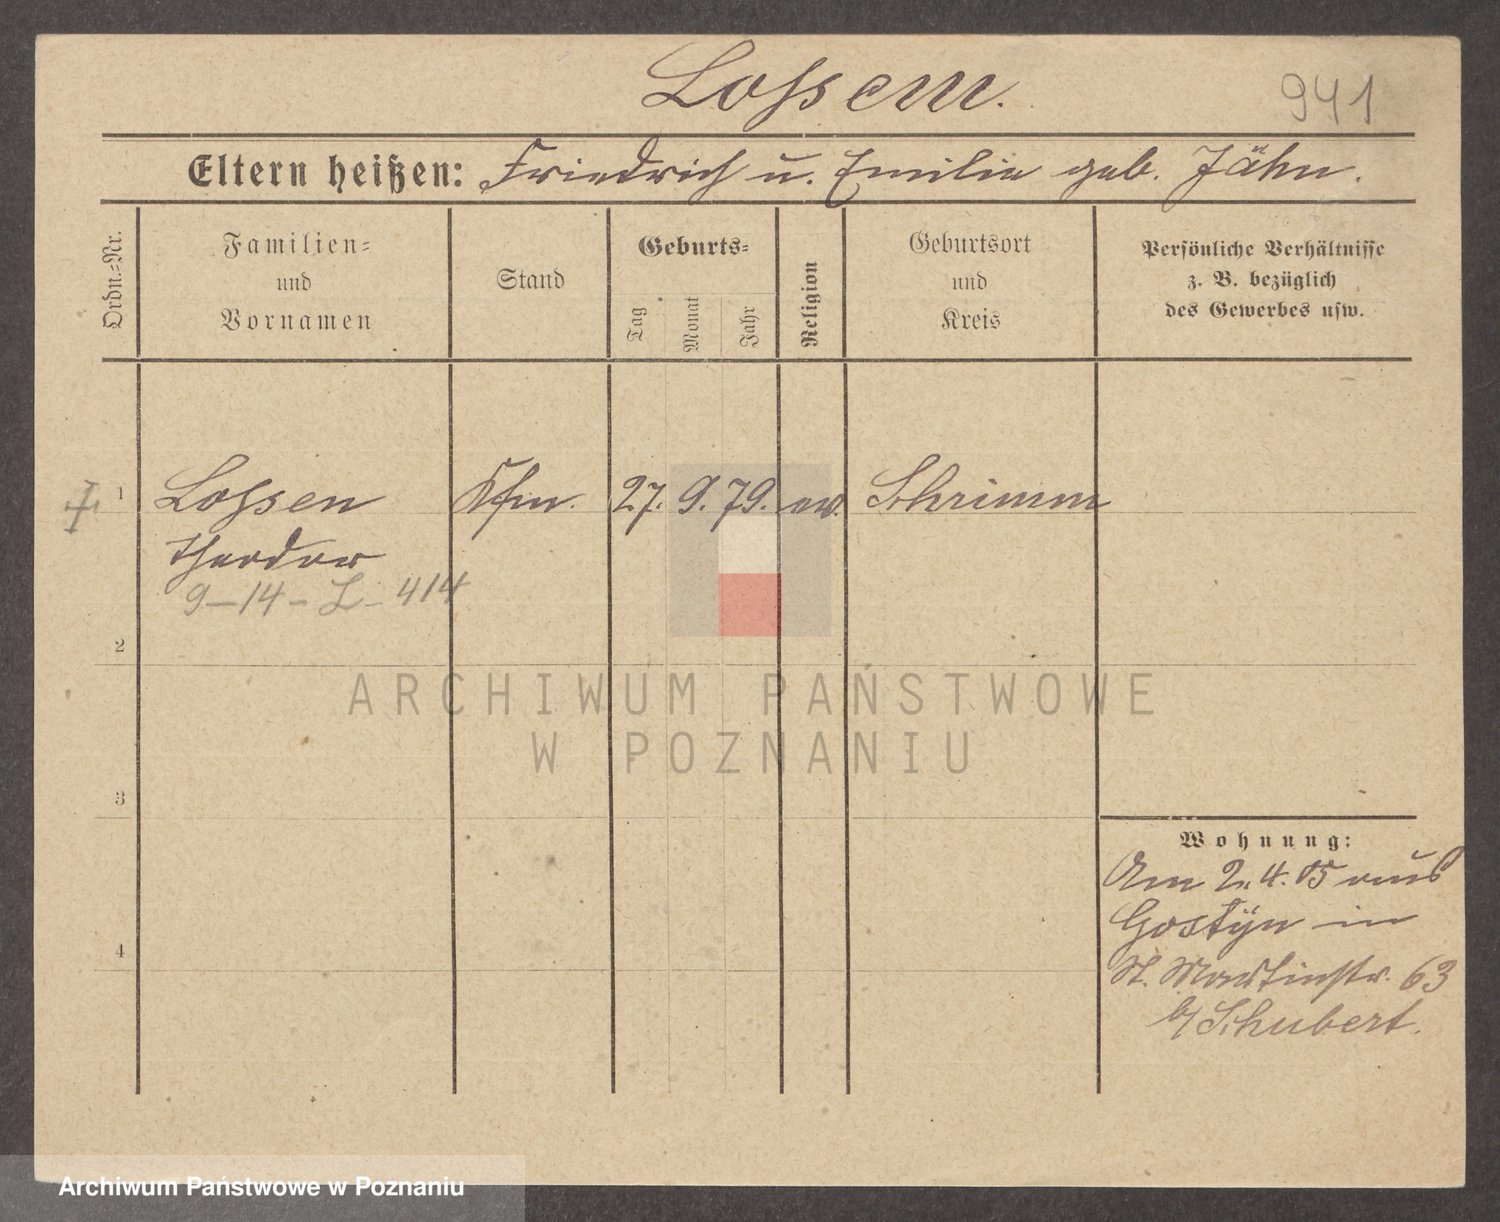 Lossem.
941
Eltern heißen: Friedrich u. Emilie geb. Jähn.
Ordn.=Nr.
Familien=
und
Vornamen
Stand
Geburts=
Tag
Monat
Jahr
Religion
Geburtsort
und
Kreis
Persönliche Verhältnisse
z. B. bezüglich
des Gewerbes usw.
1 Lossen Kfm. 27. 9. 79. ev. Schrimm
Theodor
9-14-L-414
2
3
4
Wohnung:
Am 2. 4. 05 aus
Gostÿn in
St. Martinstr. 63
b/ Schubert.
ARCHIWUM PAŃSTWOWE
W POZNANIU
Archiwum Państwowe w Poznaniu